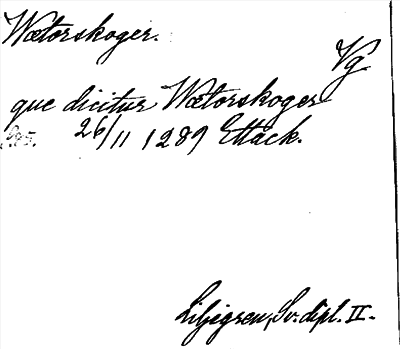 Wætorskoger.
Vg
que dicitur Wætorskoger
26/11 1289 Ettack.
Liljegren, Sv. dipl. II.